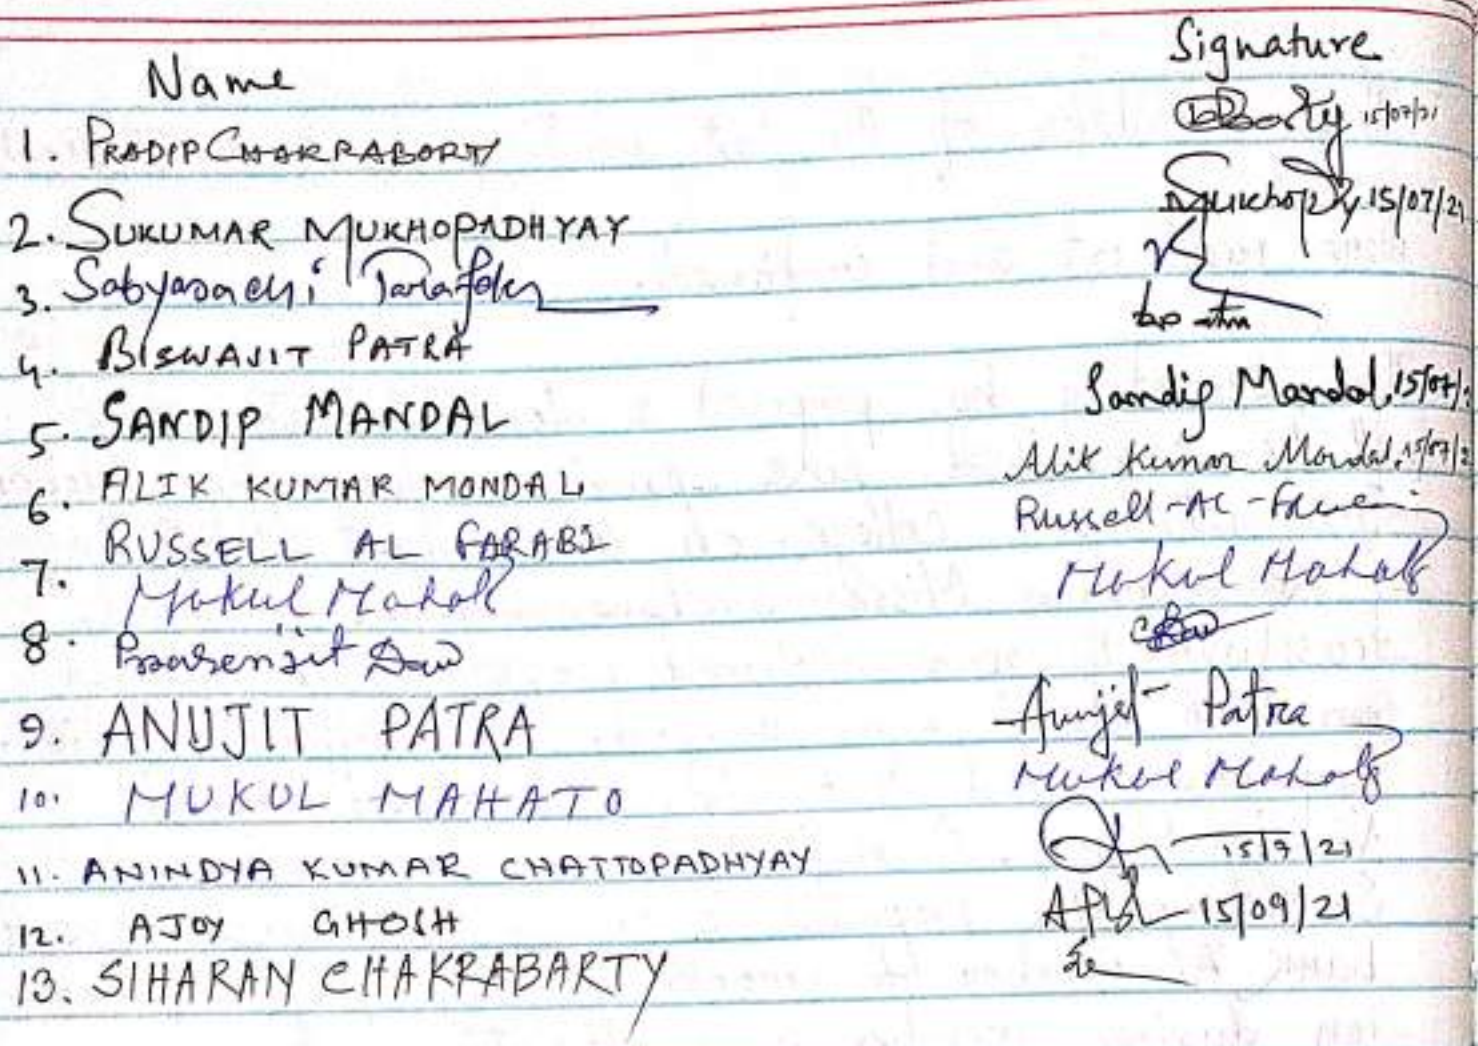 Name Signature
1. PRADIP CHAKRABORTY 15/07/21
2. SUKUMAR MUKHOPADHYAY Mukhopdy 15/07/21
3. Sabyasachi Tarafder
4. BISWAJIT PATRA
5. SANDIP MANDAL Sandip Mandal 15/07/
6. ALIK KUMAR MONDAL Alik Kumar Mondal. 15/07/2
7. RUSSELL AL FARABI Russell-Al-
Mukul Mahato Mukul Mahato
8. Prasenjit Daw
9. ANUJIT PATRA Anujit Patra
10. MUKUL MAHATO Mukul Mahato
11. ANINDYA KUMAR CHATTOPADHYAY 15/7/21
12. AJOY GHOSH 15/09/21
13. SIHARAN CHAKRABARTY